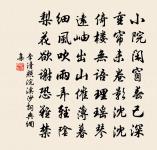 小院閑窗春已深
重簾未捲影沈沈
倚樓無語理瑤琴
遠岫出山催薄暮
細風吹雨弄輕陰
梨花欲謝恐難禁
李清照浣溪沙詞